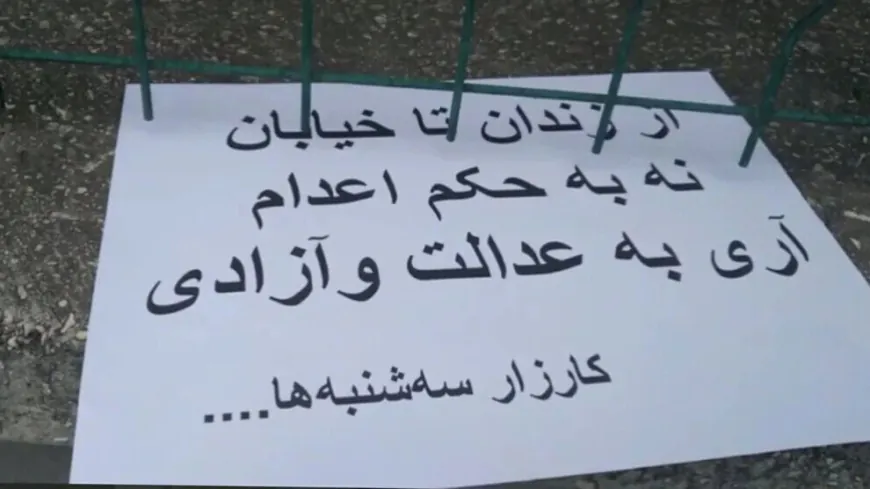 از زندان تا خیابان
نه به حکم اعدام
آری به عدالت وآزادی
کارزار سه‌شنبه‌ها....